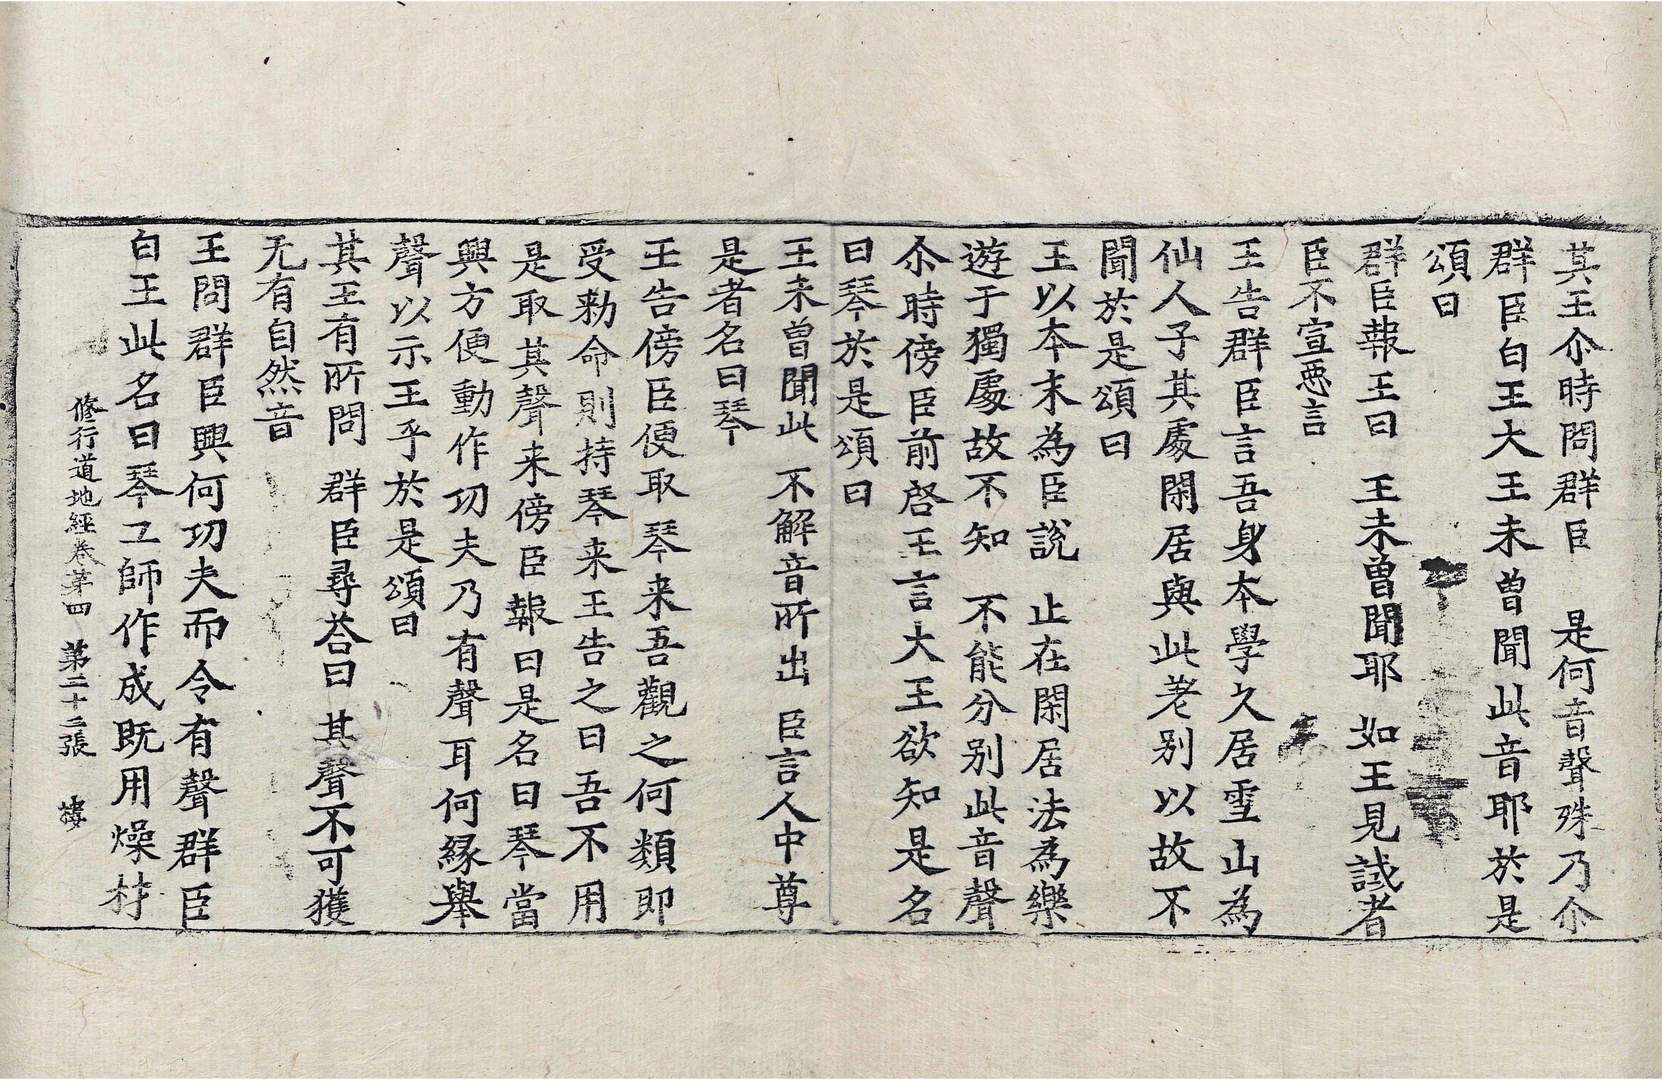 其王尒時問群臣　是何音聲殊乃尒
群臣白王大王未曾聞此音耶於是
頌曰
群臣報王曰　王未曾聞耶　如王見試者
臣不宣悪言
王告群臣言吾身本學久居雪山為
仙人子其處閑居與此差别以故不
聞於是頌曰
王以本末為臣說　止在閑居法為樂
遊于獨處故不知　不能分别此音聲
尒時傍臣前啓王言大王欲知是名
曰琴於是頌曰
王未曾聞此　不解音所出　臣言人中尊
是者名曰琴
王告傍臣便取琴来吾觀之何類即
受勑命則持琴来王告之曰吾不用
是取其聲来傍臣報曰是名曰琴當
興方便動作功夫乃有聲耳何縁舉
聲以示王乎於是頌曰
其王有所問　群臣尋荅曰　其聲不可獲
无有自然音
王問群臣興何功夫而令有聲群臣
白王此名曰琴工師作成既用燥材
修行道地經卷苐四　第二十二張　樓